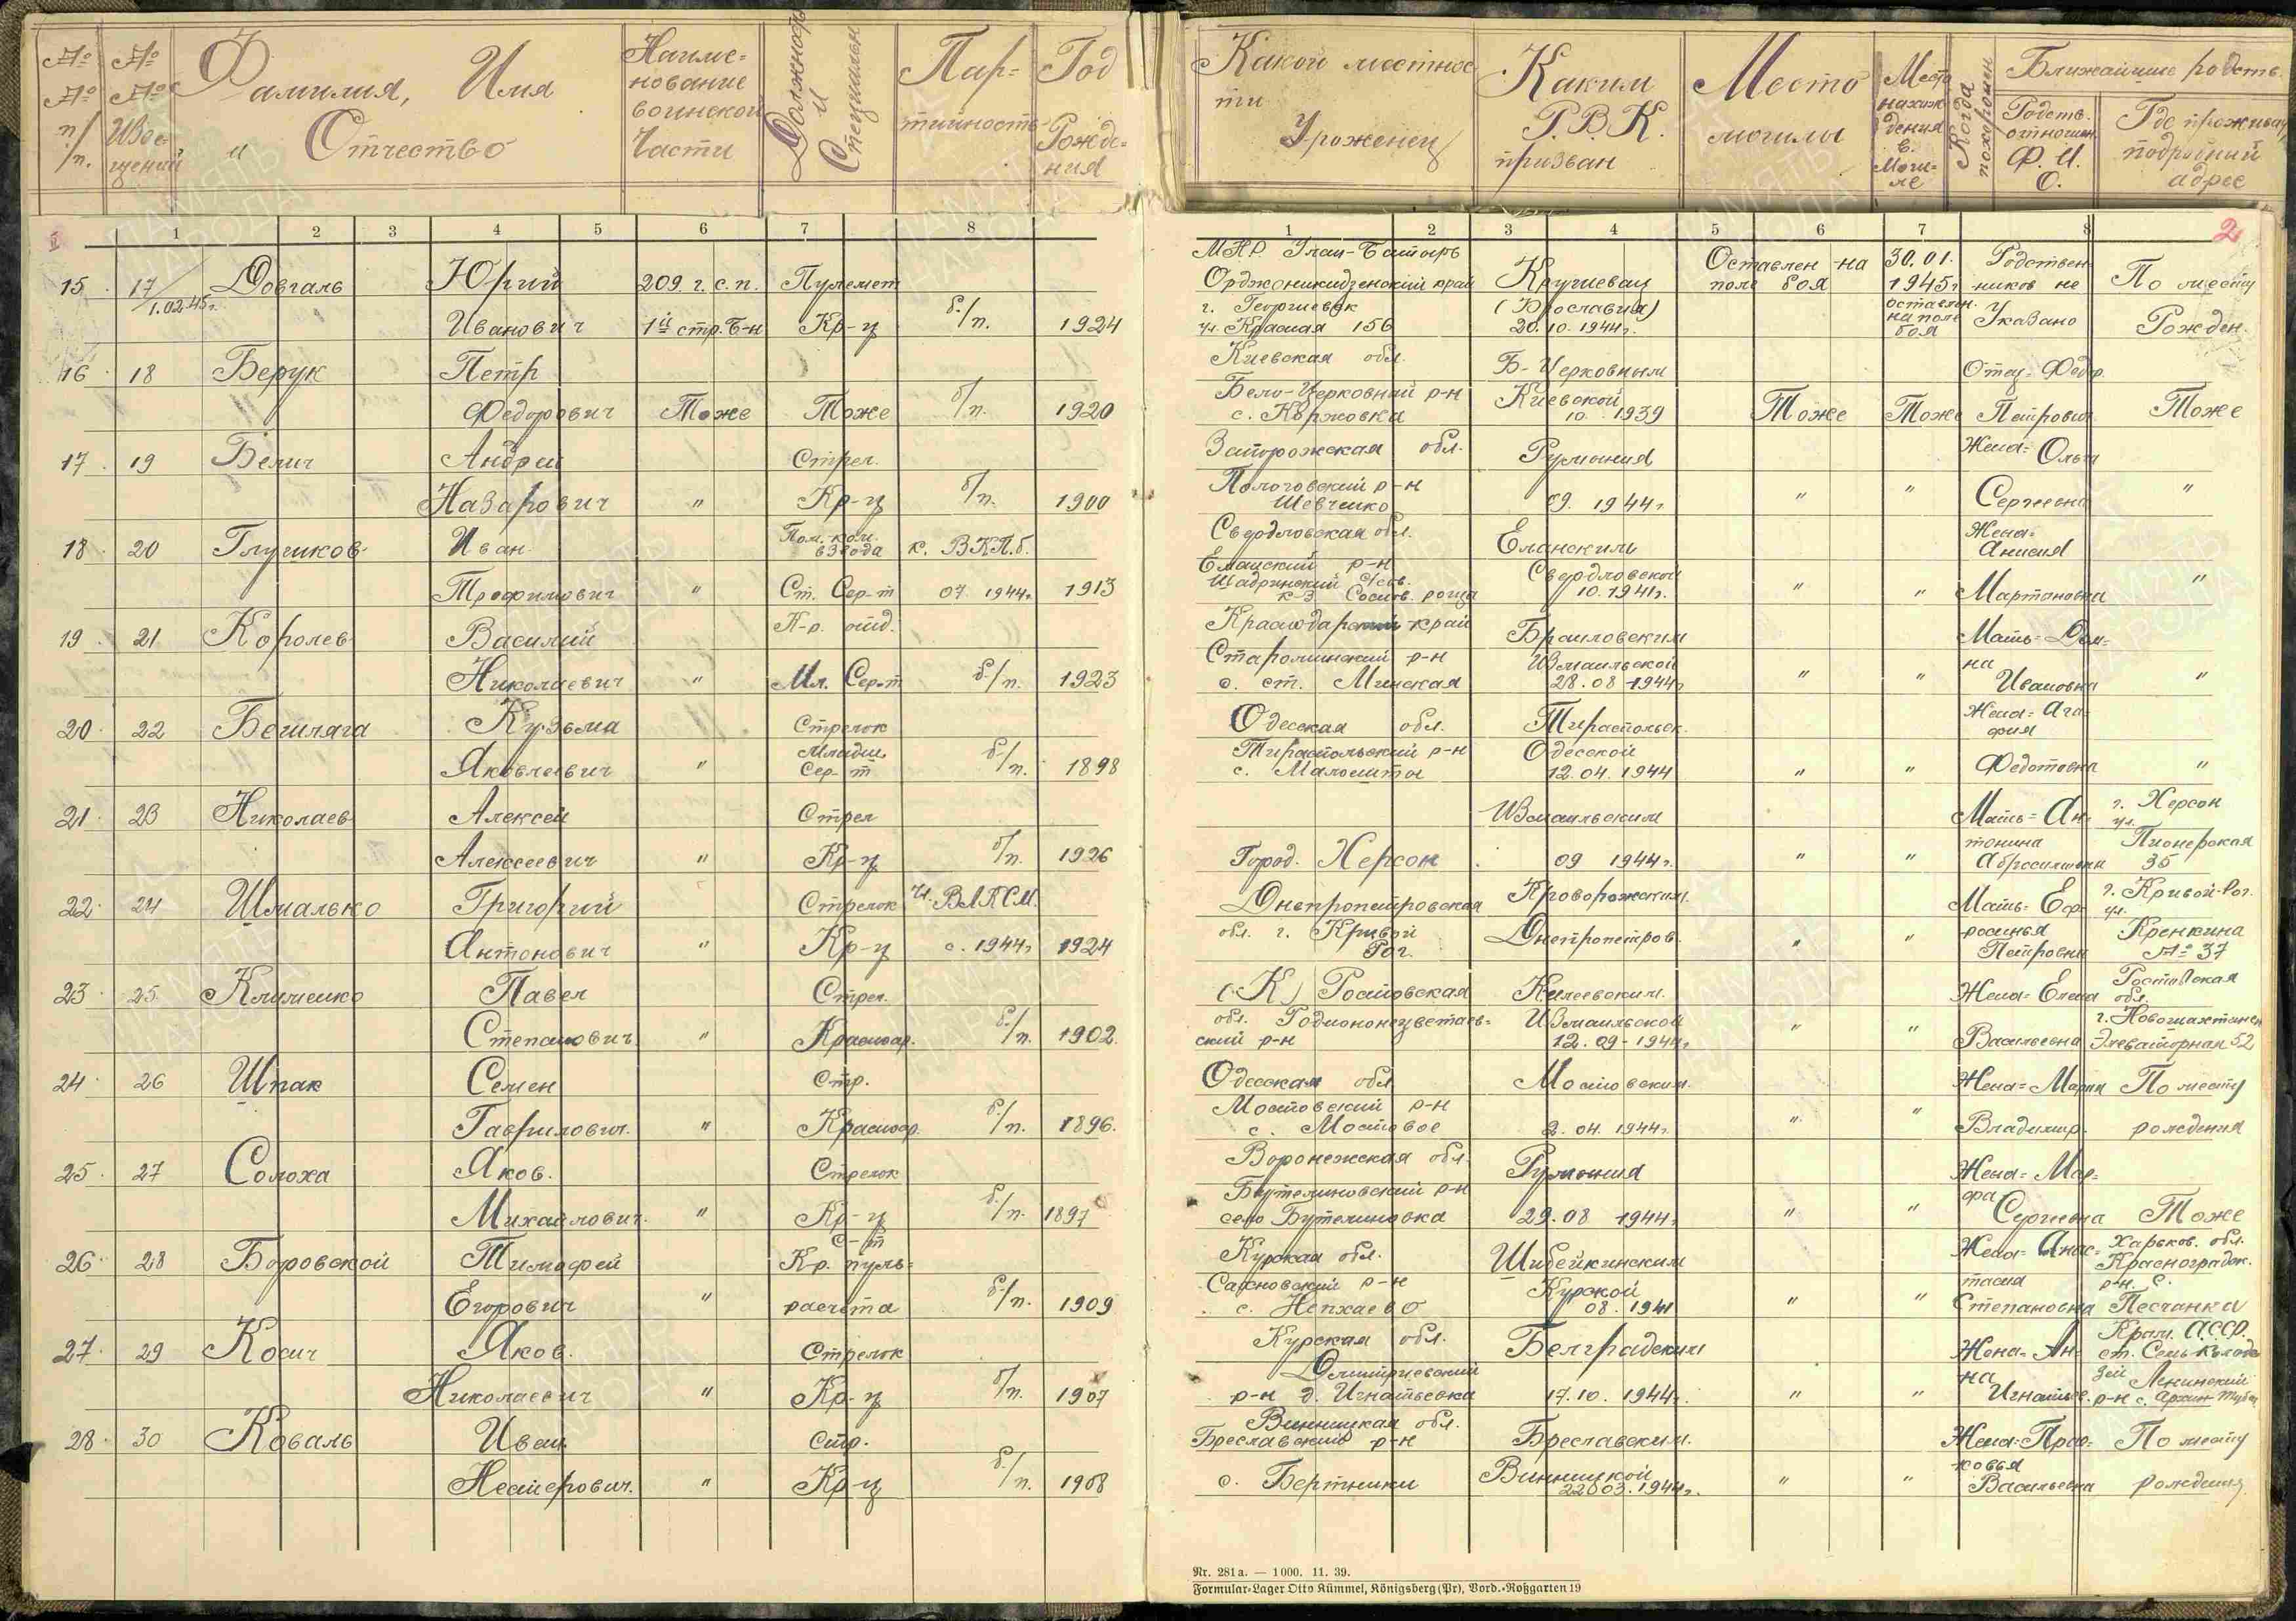 № № п/п.
№ № Изве-щений
Фамилия, Имя
и Отчество
Наиме-
нование
воинской
Части
Должность
и
Специальн
Пар-
тийность
Год
Рожде-
ния
Какой местнос
ти
Уроженец
Каким
Р.В.К.
призван
Место
могилы
Место
нахож
дения
в
Моги-
ле
Когда
похоронен
Ближайшие родств.
Родств.
отношен
Ф. И.
О.
Где проживает
подробный
адрес
1 2 3 4 5 6 7 8
1 2 3 4 5 6 7 8
2
15 17/1.02.45г. Довгаль Юрий 209 г.с.п. Пулемет
Иванович 1й стр. б-н Кр-ц б/п. 1924
МНР Улан-Батыр
Орджоникидзенский край
г. Георгиевск
ул. Красная 156
20.10.1944г.
Оставлен на
поле боя
30.01.
1945г
оставлен.
на поле
боя
Родствен-
ников не
Указано
По месту
Рожден.
16 18 Берук Петр
Федорович Тоже Тоже б/п. 1920
Киевская обл.
Бело-Церковный р-н
с. Коржовка
Б-Церковным
Киевской
10. 1939
Тоже Тоже
Отец-Федор.
Петрович
Тоже
17 19 Белич Андрей Стрел.
Назарович " Кр-ц б/п. 1900
Запорожская обл.
Пологовский р-н
Шевченко
Румыния
09. 1944г
" "
Жена=Ольга
Сергеевна
"
18 20 Глушков Иван Пом. ком. взвода к. ВКП.б.
Трофимович " Ст. Сер-т 07. 1944г 1913
Свердловская обл.
Еланский р-н
Шадринский с/сов.
к-з Соснов. роща
Еланским
Свердловской
10. 1941г.
" "
Жена=
Анисия
Мартоновна
"
19 21 Королев Василий К-р. отд.
Николаевич " Мл. Сер-т б/п. 1923
Краснодарский край
Староминский р-н
с. ст. Минская
Браиловским
Измаильской
28.08 1944г
" "
Мать=Дом-
на
Ивановна
"
20 22 Бешляга Кузьма Стрелок
Яковлевич " Младш. Сер-т б/п. 1898
Одесская обл.
Тираспольский р-н
с. Малоешты
Тираспольск.
Одесской
12.04. 1944
" "
Жена=Ага-
фия
Федотовна
"
21 23 Николаев Алексей Стрел
Алексеевич " Кр-ц б/п. 1926
Город. Херсон
Измаильским
09 1944г.
" "
Мать=Ан-
тонина
г. Херсон
ул.
Пионерская
35
22 24 Шмалько Григорий Стрелок Чл. ВЛКСМ.
Антонович " Кр-ц с. 1944г 1924
Днепропетровская
обл. г. Кривой
Рог.
Криворожским.
Днепропетров.
" "
Мать=Еф-
росинья
Петровна
г. Кривой-Рог.
ул.
№ 37
23 25 Клименко Павел Стрел.
Степанович " Красноар. б/п. 1902
(К) Ростовская
обл. Родиононецветаев-
ский р-н
Измаильской
12.09-1944г
" "
Жена=Елена
Васильевна
Ростовская
обл.
г. Новошахтинск
Элеваторная 52
24 26 Шпак Семен Стр.
Гаврилович. " Красноар. б/п. 1896.
Одесская обл
Мостовский р-н
с. Мостовое
Мостовским.
2.04. 1944г.
" "
Жена=Мария
Владимир.
По месту
рождения
25 27 Солоха Яков. Стрелок
Михайлович. " Кр-ц б/п. 1897
Воронежская обл.
Бутелиновский р-н
село Бутелиновка
Румыния
29.08 1944г
" "
Жена=Мар-
фа
Сергеевна
Тоже
26 28 Боровской Тимофей С-т Кр. пуль-
Егорович " расчета б/п. 1909
Курская обл.
Сажновский р-н
с. Непхаево
Шибейкинским
Курской
08. 1941
" "
Жена=Анас-
тасия
Степановна
Харьков. обл.
Красноградск.
р-н. с.
Песчанка
27 29 Косич Яков. Стрелок
Николаевич " Кр-ц б/п. 1907
Курская обл.
Дмитриевский
р-н д. Игнатьевка
Белградским
17.10. 1944г.
" "
Жена=Ан-
на
Игнатьев.
Крым. АССР.
ст. Семь Колоде
зей Ленинский
р-н с.
28 30 Коваль Иван Стр.
Несперович. " Кр-ц б/п. 1908
Винницкая обл.
Бреславский р-н
с. Бертники
Бреславским.
Винницкой
22.03.1944г.
" "
Жена=Прас-
ковья
Васильевна
По месту
рождения
Nr. 281a. — 1000. 11. 39.
Formular-Lager Otto Kümmel, Königsberg (Pr), Vord.-Roßgarten 19